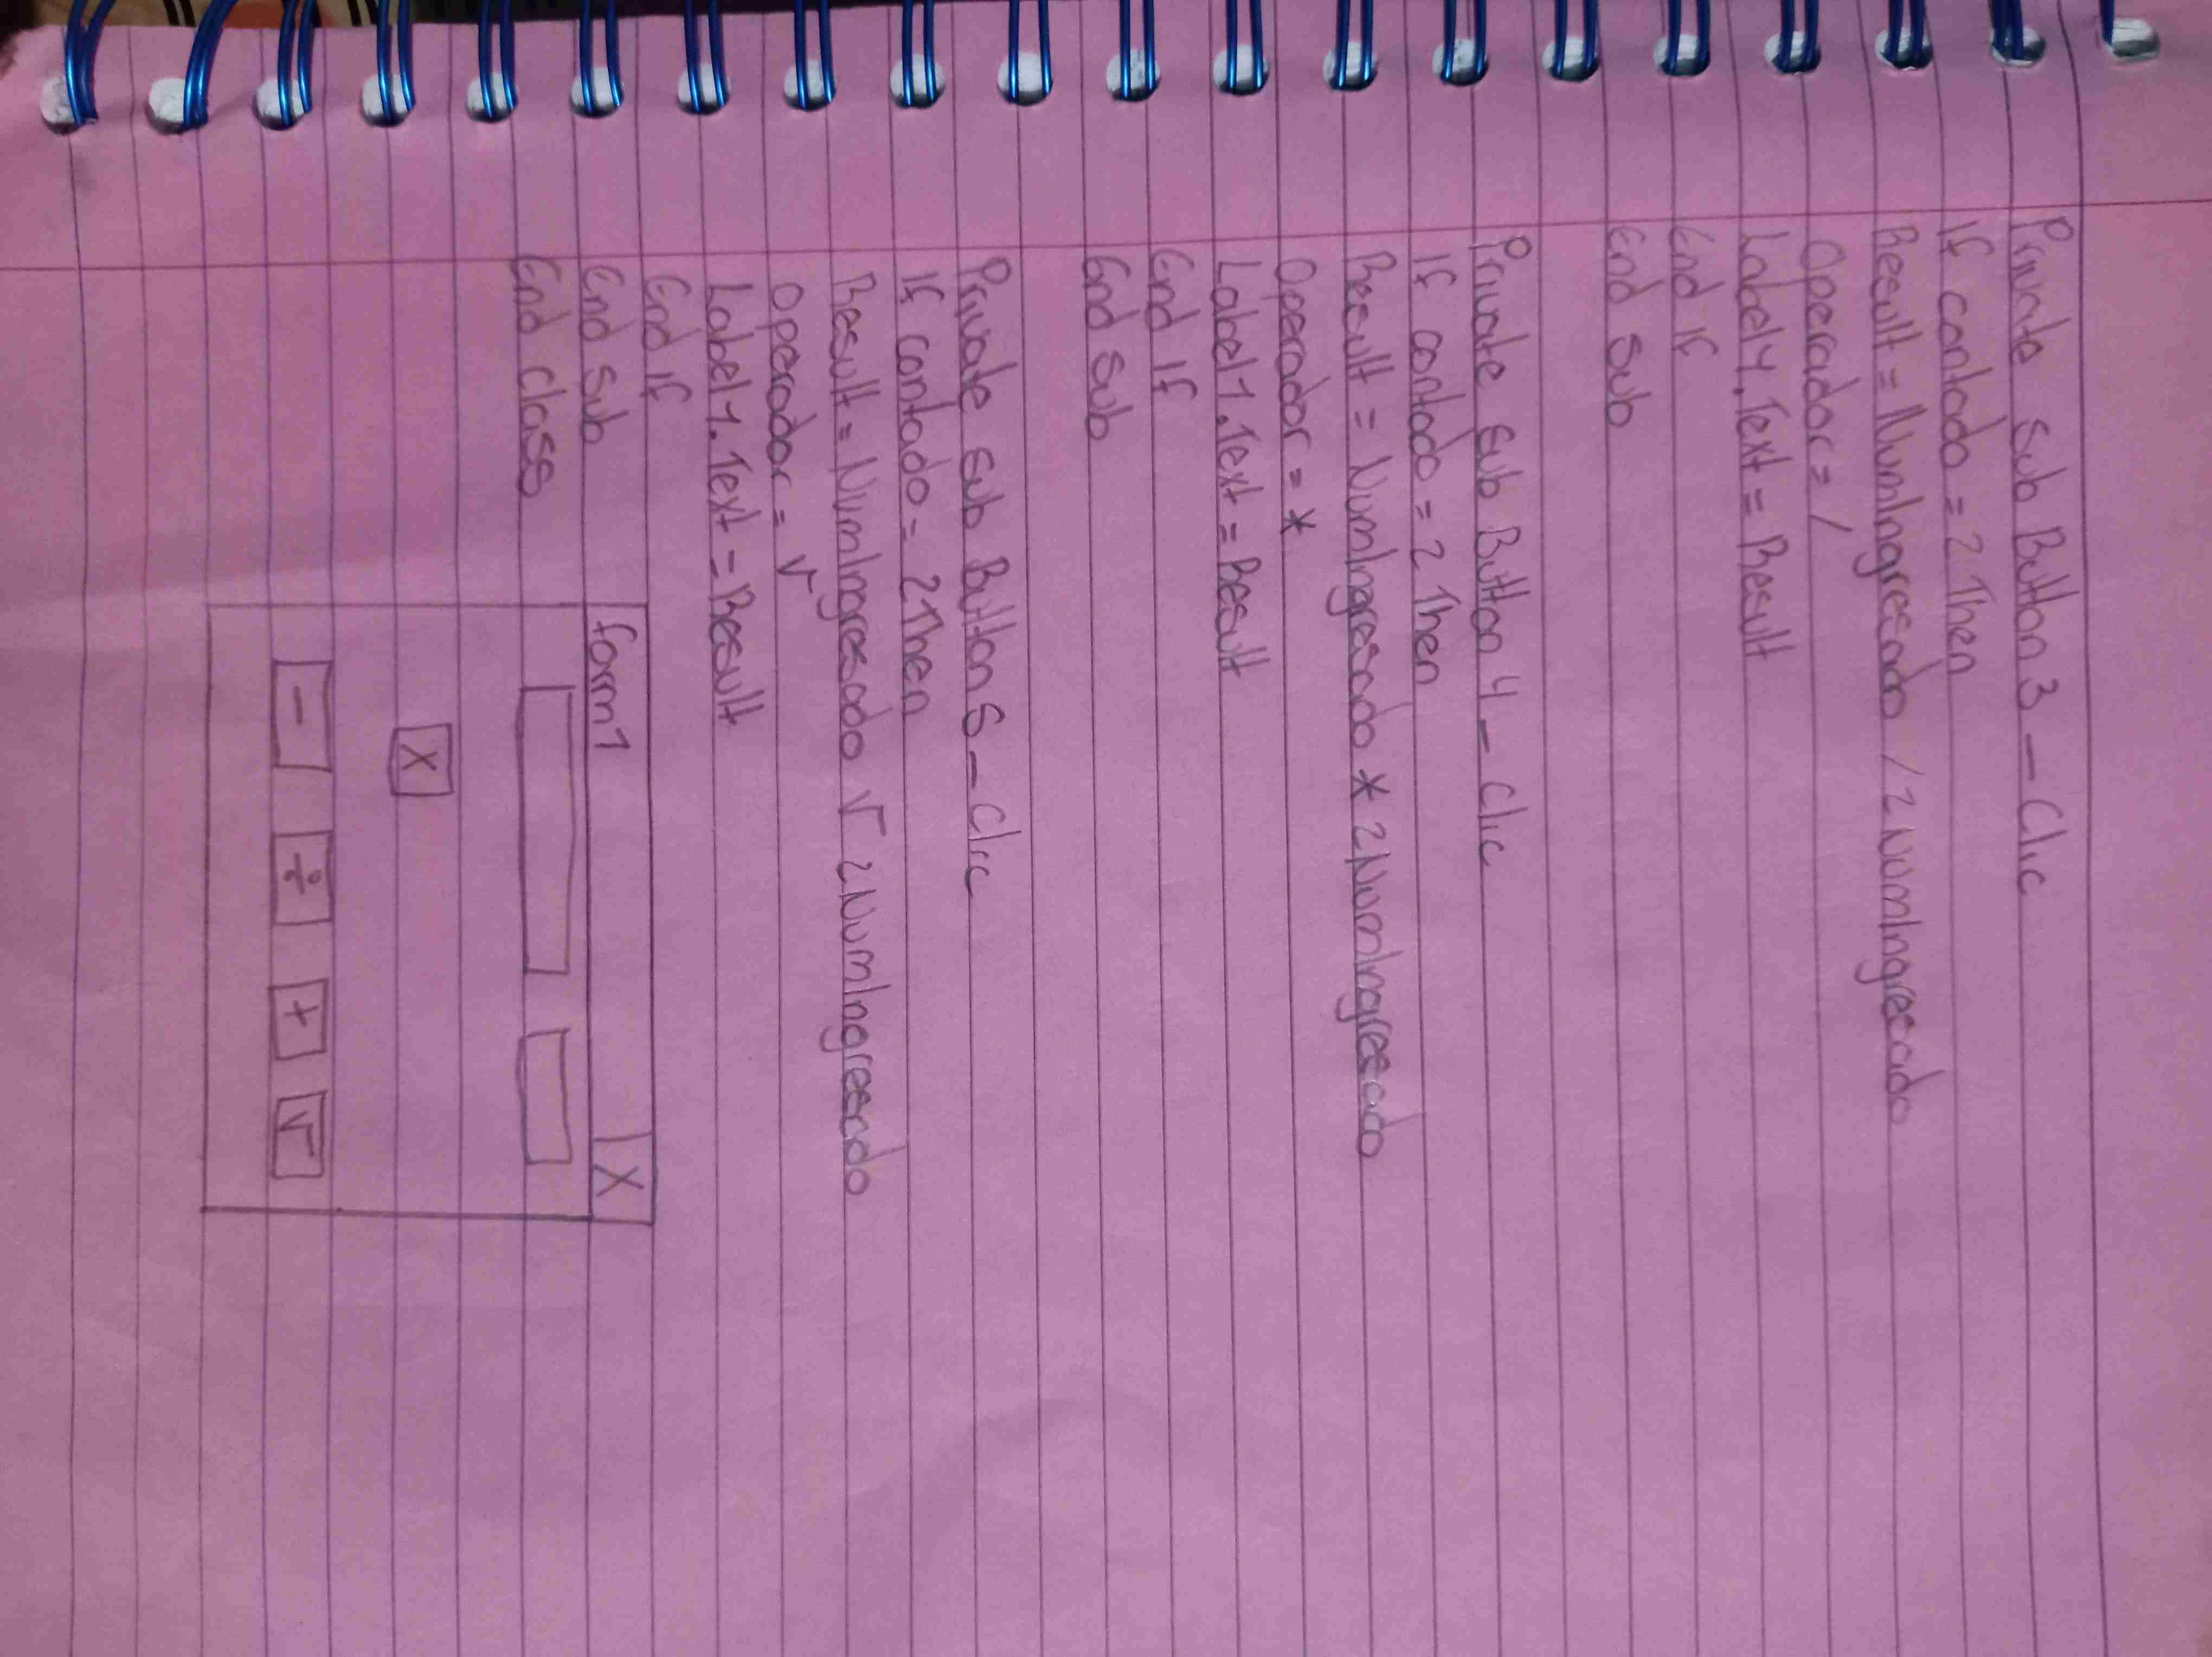 Private sub Button 3 - Clic
If contado = 2 Then
Result = NumIngresado / 2NumIngresado
Operador = /
Label 1. Text = Result
End If
End Sub
Private sub Button 4 - Clic
If contado = 2 Then
Result = NumIngresado * 2NumIngresado
Operador = *
Label 1. Text = Result
End If
End Sub
Private sub Button 5 - Clic
If contado = 2 Then
Result = NumIngresado √ 2NumIngreendo
Operador = √
Label 1. Text = Result
End If
End Sub
End Class
form 1 X
X
- ÷ + √